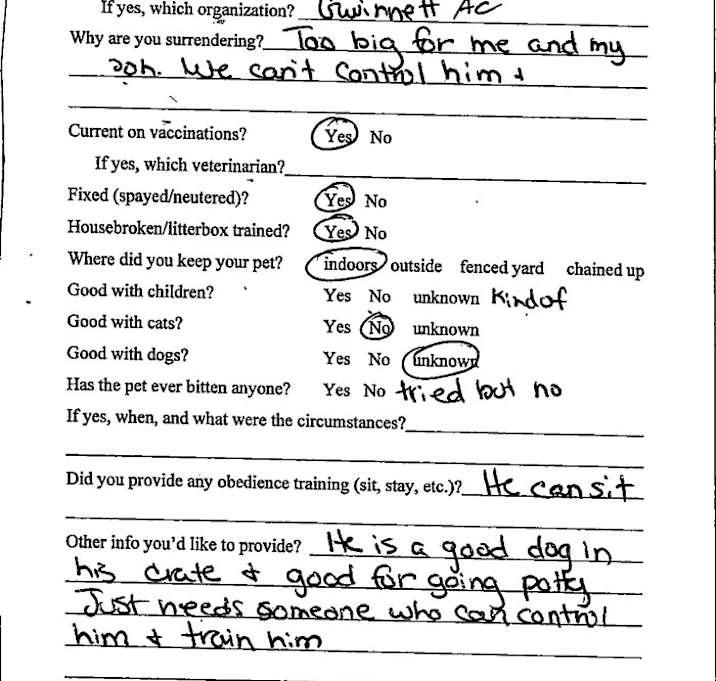 If yes, which organization? Gwinnett AC
Why are you surrendering? Too big for me and my
son. We can't control him &
Current on vaccinations? Yes No
If yes, which veterinarian?
Fixed (spayed/neutered)? Yes No
Housebroken/litterbox trained? Yes No
Where did you keep your pet? indoors outside fenced yard chained up
Good with children? Yes No unknown Kind of
Good with cats? Yes No unknown
Good with dogs? Yes No unknown
Has the pet ever bitten anyone? Yes No tried but no
If yes, when, and what were the circumstances?
Did you provide any obedience training (sit, stay, etc.)? He can sit
Other info you'd like to provide? He is a good dog in
his crate & good for going potty
Just needs someone who can control
him & train him